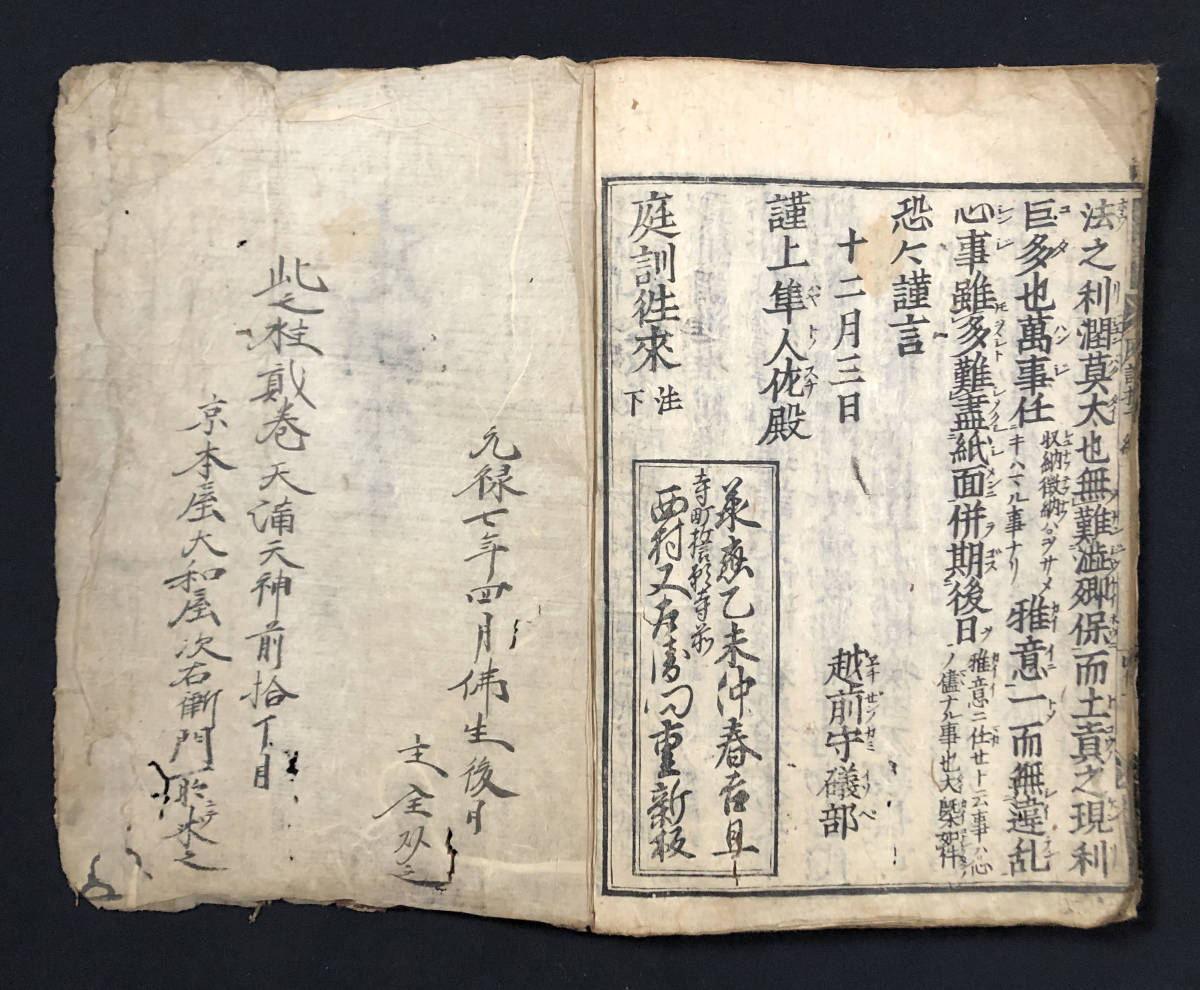 法之利潤莫太也無難澁郷保而土貢之現利
巨多也萬事任
収納徴納ハヲサメ
キハマル事ナリ
雅意一而無違乱
心事雖多難盡紙面併期後日
雅意ニ仕せト云事ハ心
ノ儘ナル事也大槩如件
恐々謹言
十二月三日
越前守礒部
謹上隼人佐殿
庭訓徃來
法下
承應乙未仲春吉旦
寺町誓願寺前
西村又左衛門重新板
元禄七年四月佛生後日
主全
此之
貮巻天満天神前拾丁目
京本屋大和屋次右衛門
求之